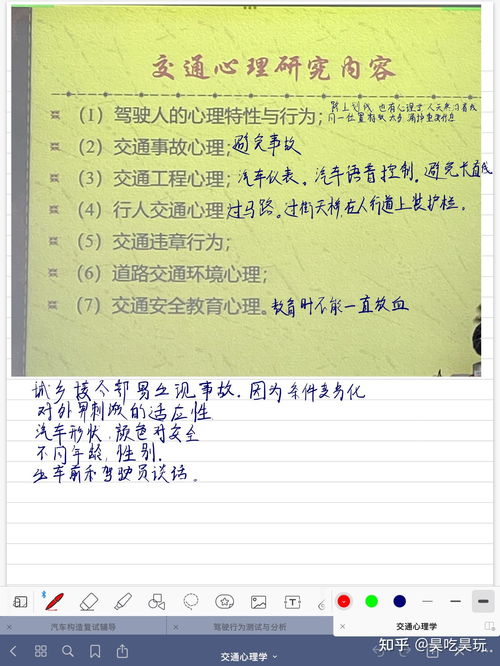 交通心理研究内容
(1) 驾驶人的心理特性与行为;
(2) 交通事故心理; 避免事故
(3) 交通工程心理; 汽车仪表。汽车语音控制。避免长直线
(4) 行人交通心理 过马路。过街天桥,在人行道上装护栏。
(5) 交通违章行为;
(6) 道路交通环境心理;
(7) 交通安全教育心理。教育时不能一直放血
城乡接合部易出现事故。因为条件变化
对外界刺激的适应性
汽车形状,颜色对安全
不同年龄,性别.
出车前和驾驶员谈话。
汽车构造复试辅导
驾驶行为测试与分析
交通心理学
交通心理学
知乎 @昊吃昊玩